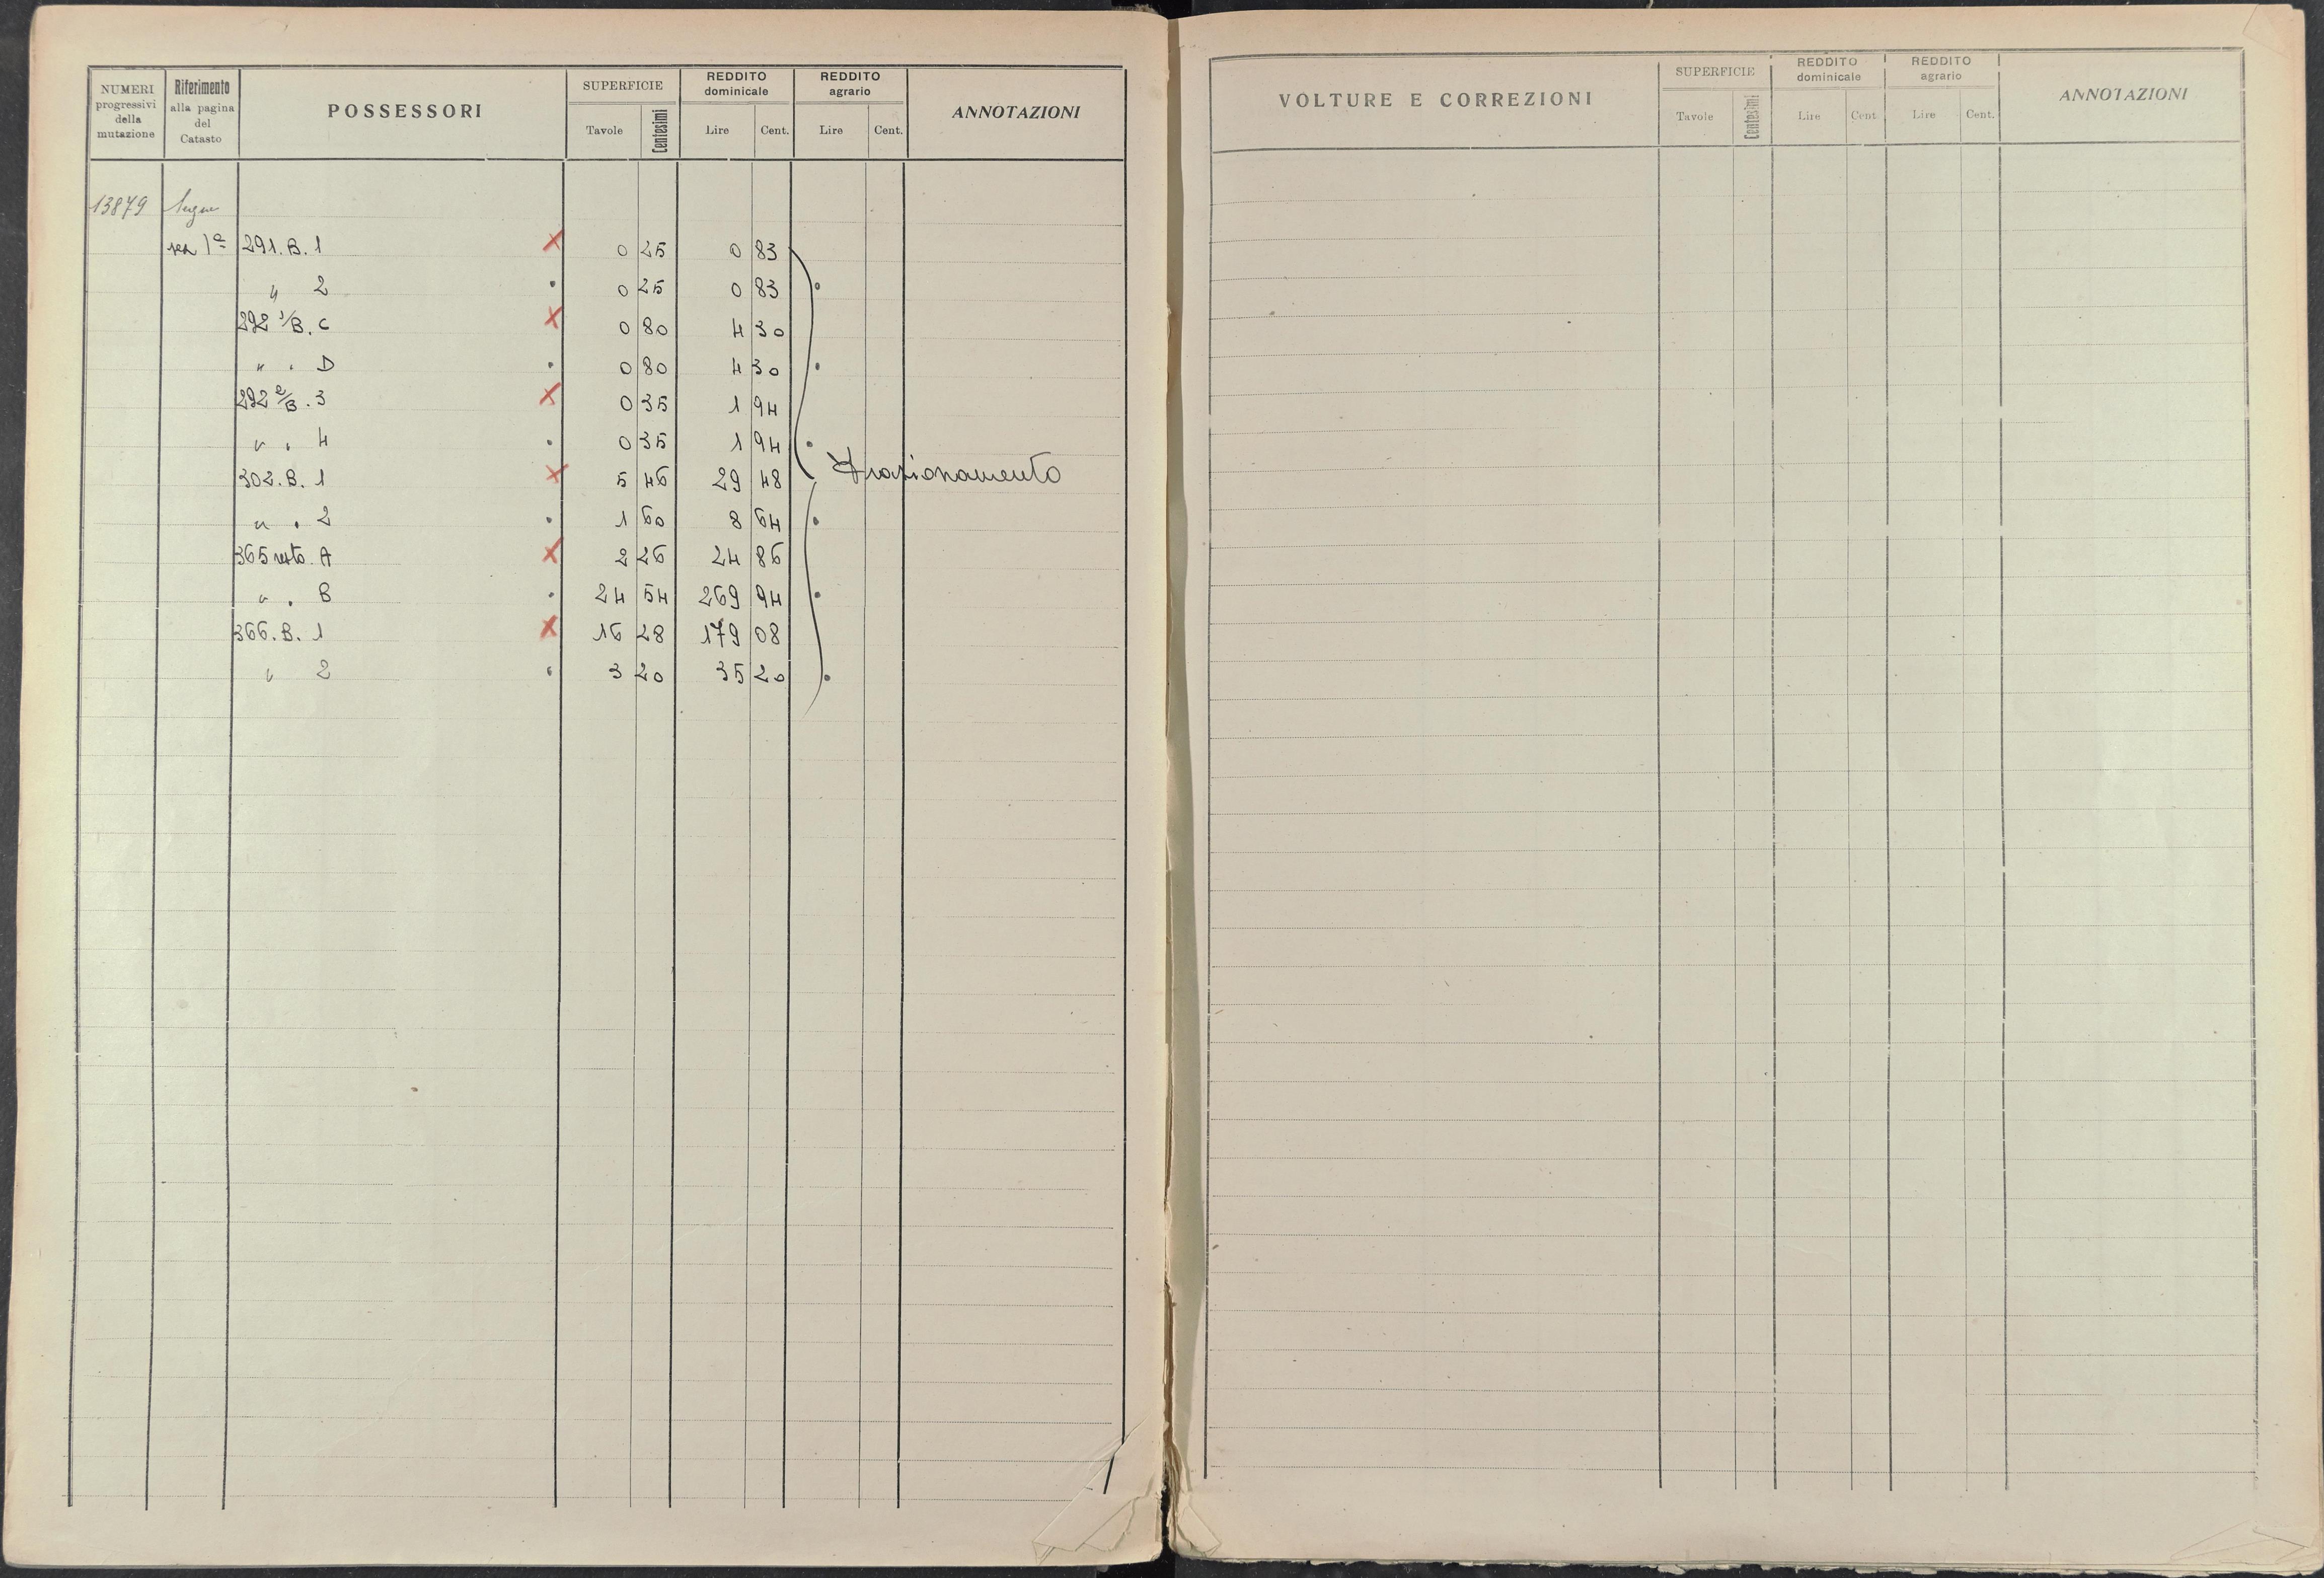 NUMERI progressivi della mutazione | Riferimento alla pagina del Catasto | POSSESSORI | SUPERFICIE Tavole Centesimi | REDDITO dominicale Lire Cent. | REDDITO agrario Lire Cent. | ANNOTAZIONI
13879 Segue
sez 1ª 291.B.1 X 0 25 0 83
" 2 • 0 25 0 83 •
292 1/B.C X 0 80 4 30
" . D • 0 80 4 30 •
292 2/B.3 X 0 35 1 94
" . 4 • 0 35 1 94 •
302.B.1 X 5 46 29 48 Frazionamento
" . 2 • 1 60 8 64 •
365 resto.A X 2 26 24 86
" . B • 24 54 269 94 •
366.B.1 X 16 28 179 08
" 2 • 3 20 35 20 •
VOLTURE E CORREZIONI | SUPERFICIE Tavole Centesimi | REDDITO dominicale Lire Cent | REDDITO agrario Lire Cent. | ANNOTAZIONI